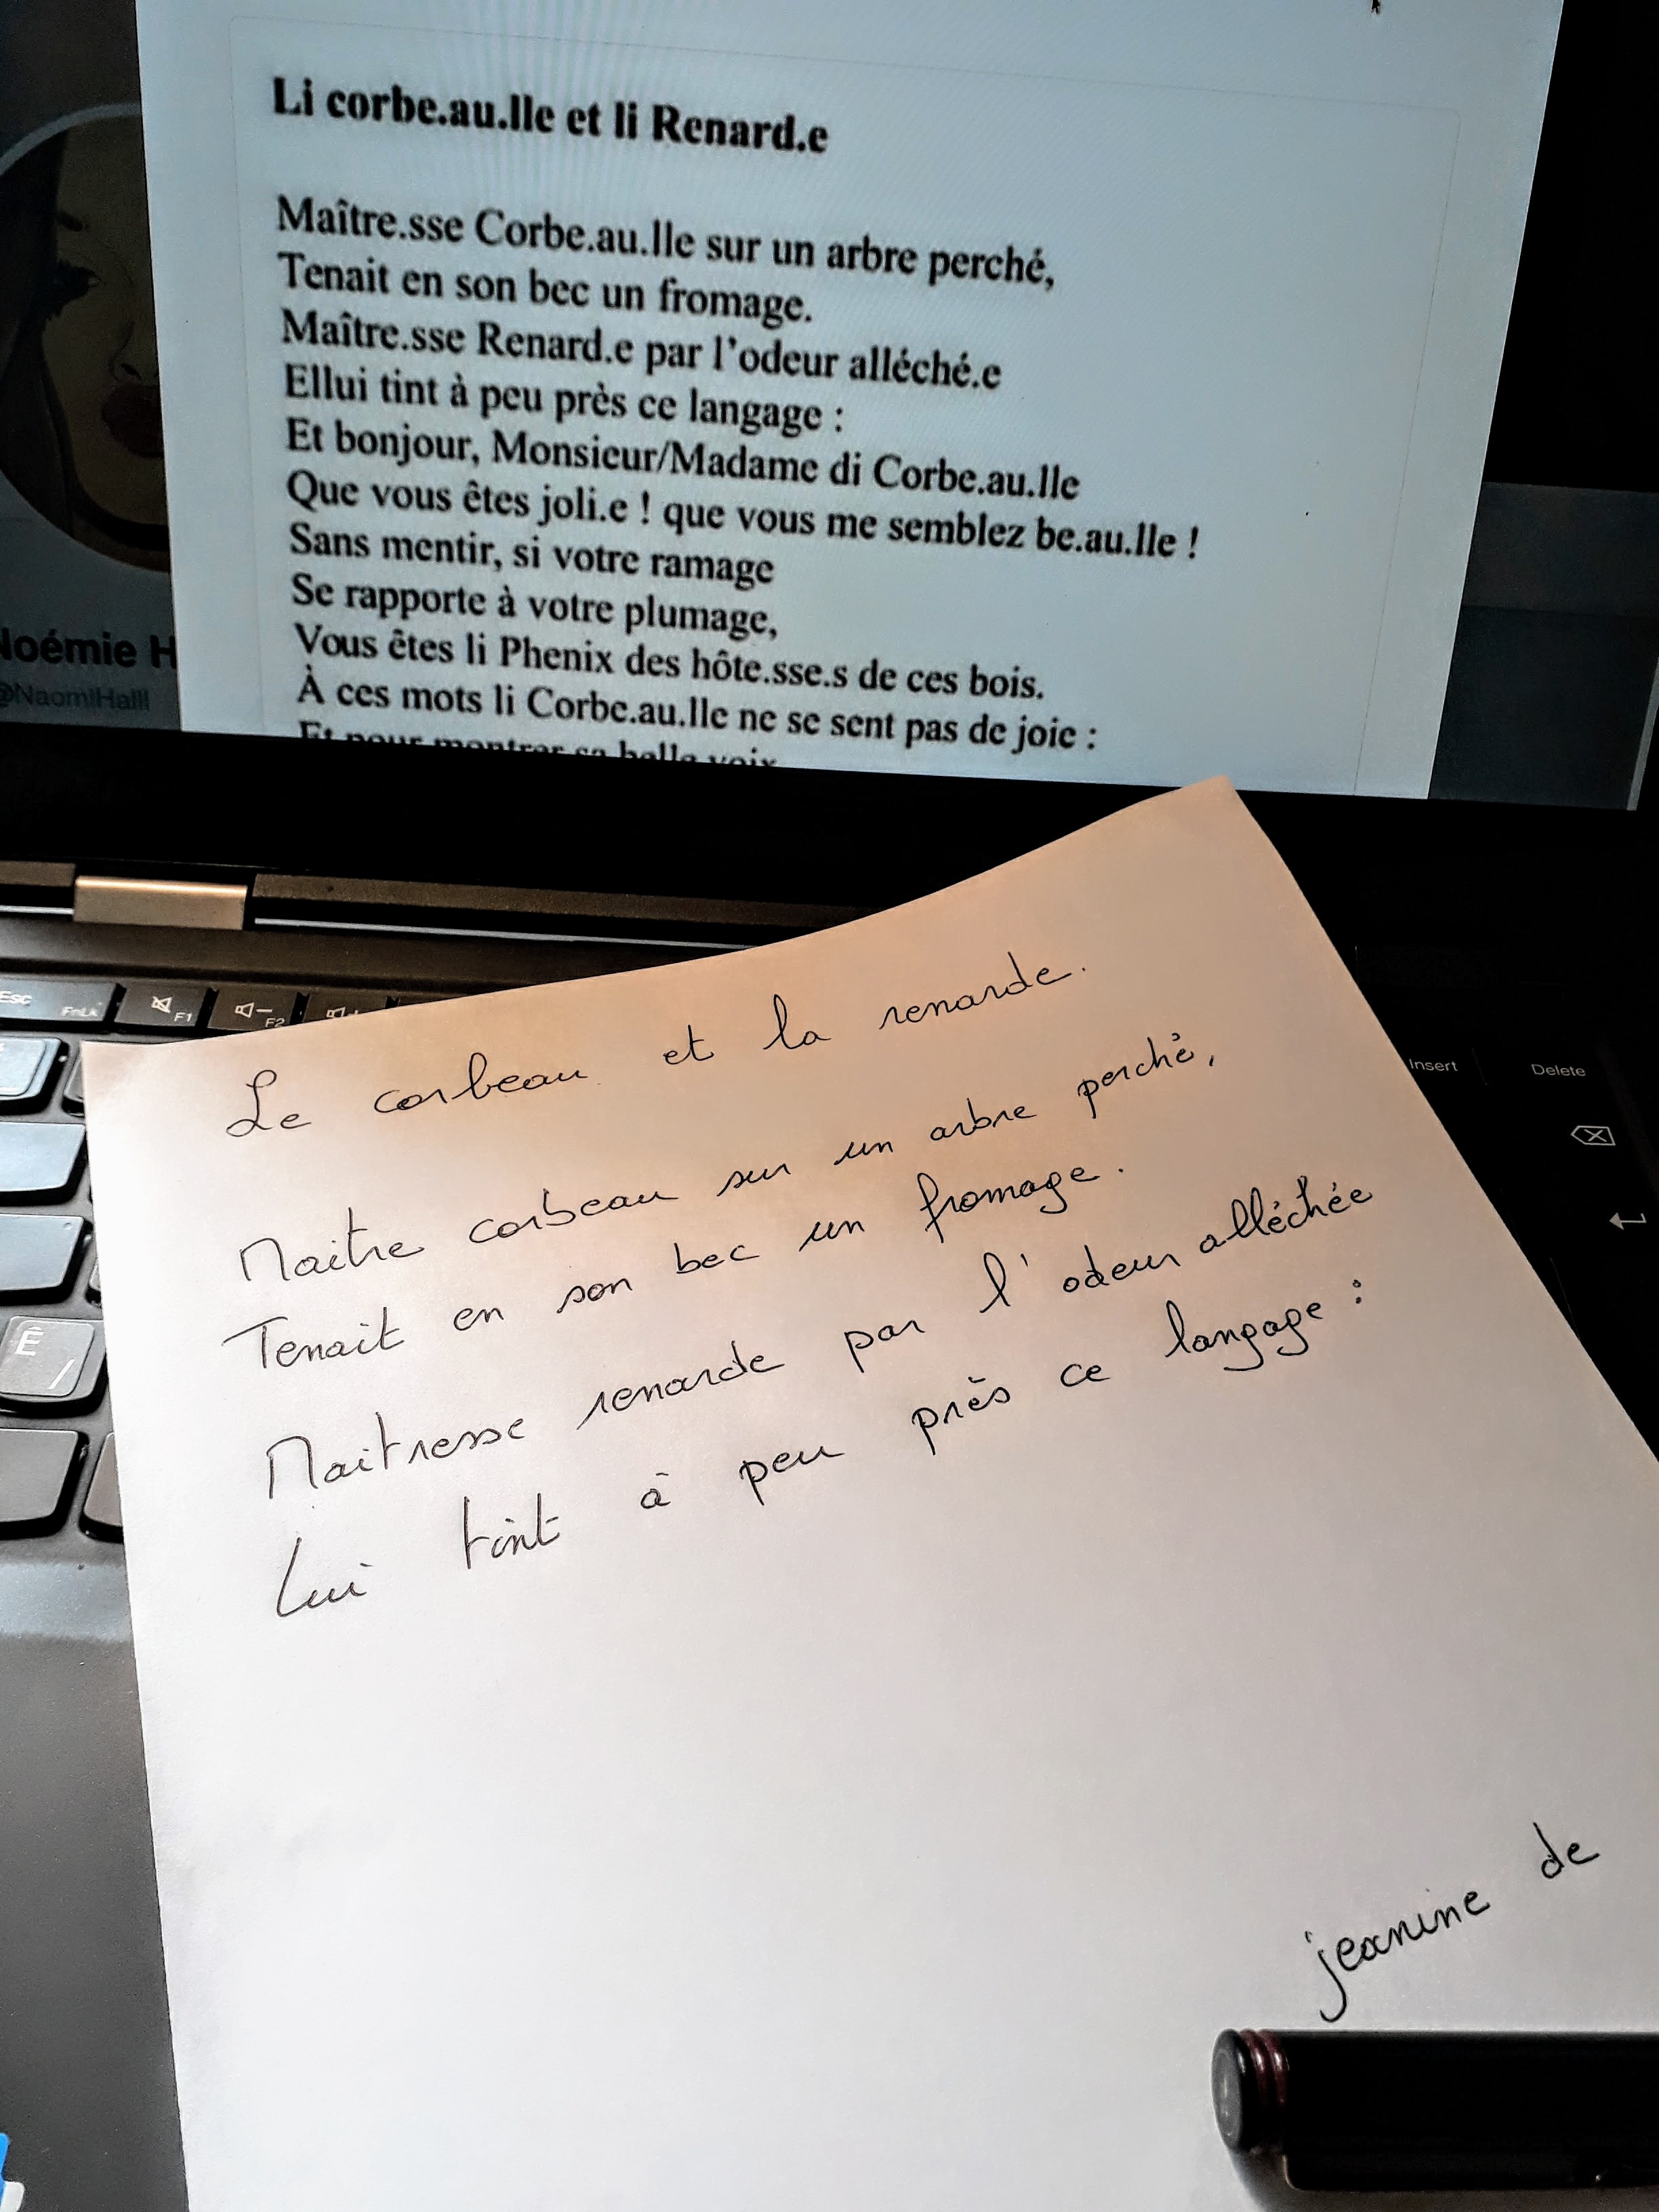 Li corbe.au.lle et li Renard.e
Maître.sse Corbe.au.lle sur un arbre perché,
Tenait en son bec un fromage.
Maître.sse Renard.e par l'odeur alléché.e
Ellui tint à peu près ce langage :
Et bonjour, Monsieur/Madame di Corbe.au.lle
Que vous êtes joli.e ! que vous me semblez be.au.lle !
Sans mentir, si votre ramage
Se rapporte à votre plumage,
Vous êtes li Phenix des hôte.sse.s de ces bois.
À ces mots li Corbe.au.lle ne se sent pas de joie :
Et pour montrer sa belle voix
Noémie H
@NaomiHalll
Esc
FnLk
F1
F2
Insert
Delete
É
/
Le corbeau et la renarde.
Maitre corbeau sur un arbre perché,
Tenait en son bec un fromage.
Maitresse renarde par l'odeur alléchée
Lui tint à peu près ce langage :
jeanine de